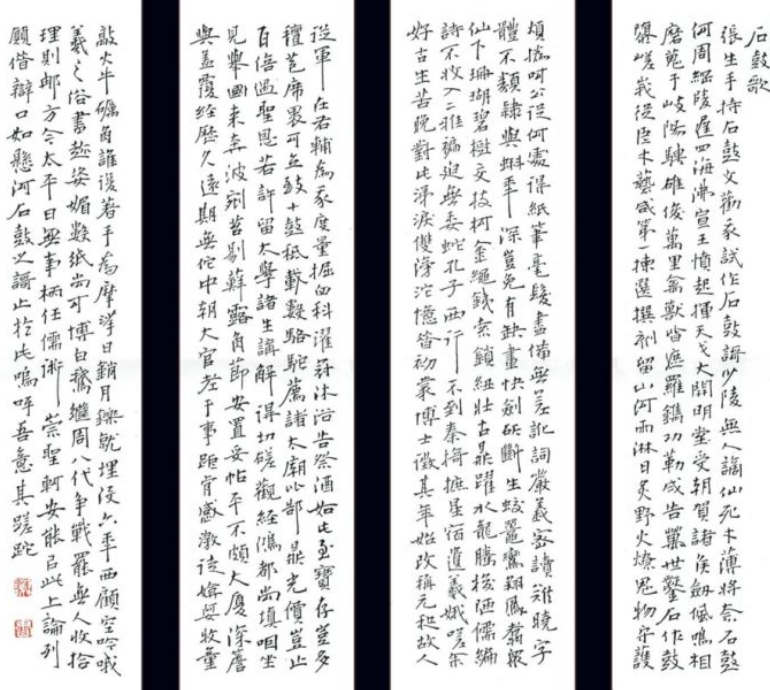 石鼓歌
張生手持石鼓文勸我試作石鼓謌少陵無人謫仙死才薄將奈石鼓
何周綱陵遲四海沸宣王憤起揮天戈大開明堂受朝賀諸侯劍佩鳴相
磨蒐于岐陽騁雄俊萬里禽獸皆遮羅鐫功勒成告萬世鑿石作鼓
隳嵯峨從臣才藝咸第一揀選撰刻留山河雨淋日炙野火燎鬼物守護
煩撝呵公從何處得紙筆毫髮盡備無差訛詞嚴義密讀難曉字
體不類隸與蝌年深豈免有缺畫快劍斫斷生蛟鼉鸞翔鳳翥眾
仙下珊瑚碧樹交枝柯金繩鐵索鎖紐壯古鼎躍水龍騰梭陋儒編
詩不收入二雅褊迫無委蛇孔子西行不到秦掎摭星宿遺羲娥嗟余
好古生苦晚對此涕淚雙滂沱憶昔初蒙博士徵其年始改稱元和故人
從軍在右輔為我度量掘臼科濯冠沐浴告祭酒如此至寶存豈多
氈苞席裹可立致十鼓秖載數駱駝薦諸太廟比郜鼎光價豈止
百倍過聖恩若許留太學諸生講解得切磋觀經鴻都尚填咽坐
見舉國來奔波剜苔剔蘚露角節安置妥帖平不頗大廈深簷
與蓋覆經歷久遠期無佗中朝大官老于事詎肯感激徒媕婀牧童
敲火牛礪角誰復著手為摩挲日銷月鑠就埋沒六年西顧空吟哦
羲之俗書趁姿媚數紙尚可博白鵝繼周八代爭戰罷無人收拾
理則那方今太平日無事柄任儒術崇聖軻安能以此上論列
願借辯口如懸河石鼓之謌止於此嗚呼吾意其蹉跎